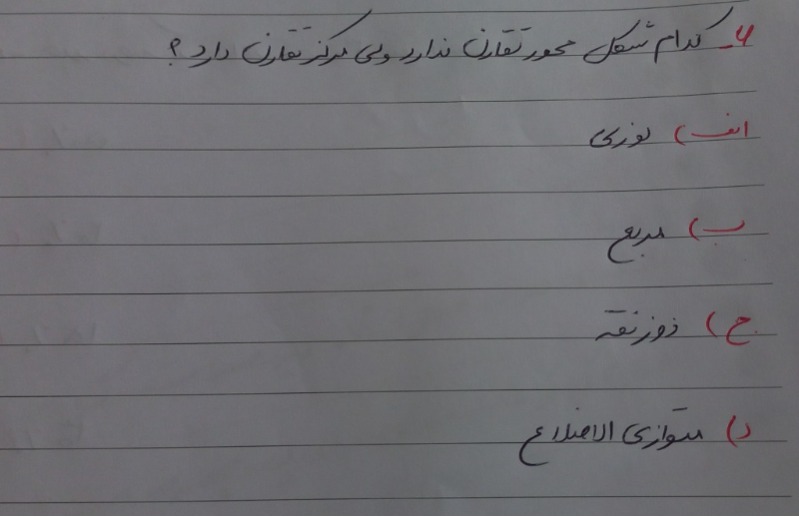 ۶- کدام شکل محور تقارن ندارد ولی مرکز تقارن دارد ؟
الف) لوزی
ب) مربع
ج) ذوزنقه
د) متوازی الاضلاع